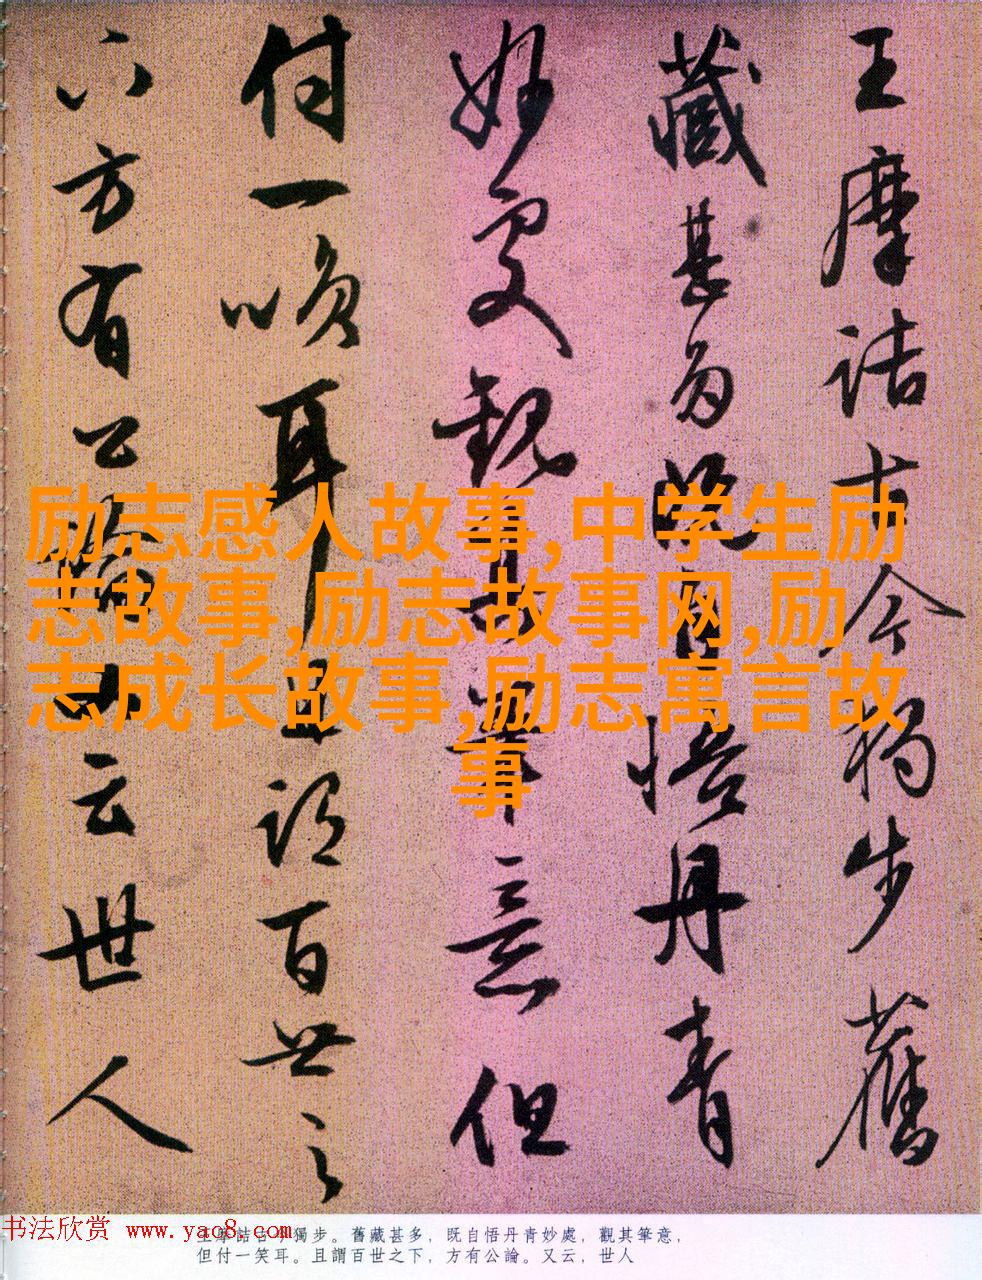 王摩詰古今獨步舊
藏甚多既自悟丹青
妙處觀其筆意但
付一笑耳且謂百世之
下方有公論又云世人
励志感人故事,中学生励
志故事,励志故事网,励
志成长故事,励志寓言故
事
书法欣赏 www.yac8.com
王摩詰古今獨步。舊藏甚多，既自悟丹青妙處，觀其筆意，
但付一笑耳。且謂百世之下，方有公論。又云，世人